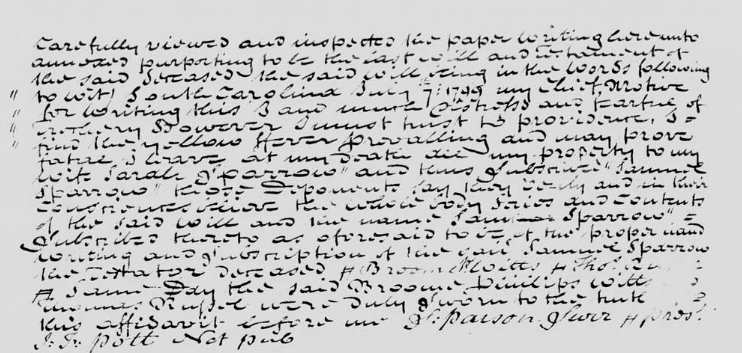 Carefully viewed and inspected the paper Writing hereunto
annexed purporting to be the last will and Testament of
the said deceased the said will being in the Words following
to wit) South Carolina July 7: 1799 my Chief Motive
" for Writing this I and much Distress and fartue of
" I must trust to providence, I
" find the yellow fever prevailing and may prove
" fatal I leave at my death all my property to my
wife Sarah Sparrow" and thus Subscribed "Samuel
Sparrow" these Deponents say they verily and in their
Consciences believe the whole body Series and Contents
of the said Will and the name Samuel Sparrow" =
Subscribed thereto as aforesaid to be of the proper hand
writing and Subscription of the said Samuel Sparrow
the Testator deceased Broom Witts Thos.
Same Day the said Broome Philips Witts
Thomas Russel were duly Sworn to the truth
this affidavit before me S: Parson Surr prest
J: J: Pott Not pub